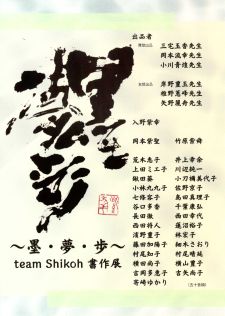 墨夢歩
～墨・夢・歩～
team Shikoh 書作展
出品者
三宅玉香先生
岡本流幸先生
小川青煌先生
岸野豊玉先生
雅野葱峰先生
矢野履舟先生
入野紫幸
岡本紫聖
竹原紫舜
荒木恵子
井上幸余
上田ミエ子
川辺純一
鍬田葵
小刀禰美代子
小林九九子
佐野京子
七條容子
島田真理子
谷口多香
千葉康弘
長田徹
西田幸代
西田将人
蓮沼裕子
濱野重子
林宏子
藤田加陽子
細木さおり
村尾知子
村尾晴延
横田尚子
横山重子
吉岡多恵子
吉矢尚子
寄崎ゆかり
(五十音順)